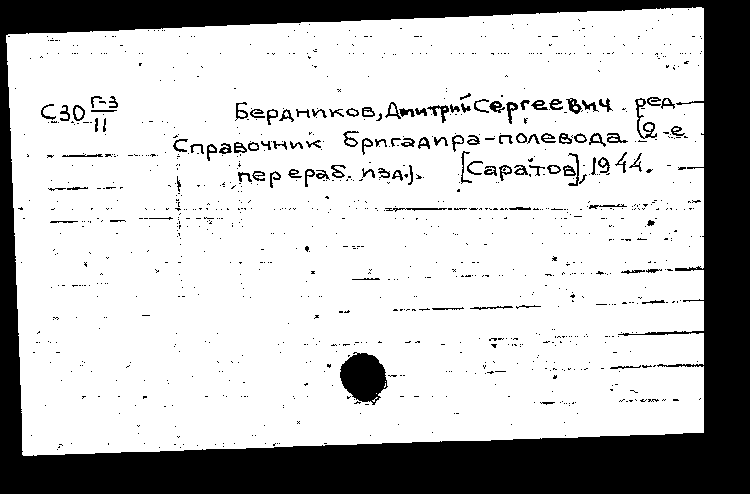 С30 Г-3/11
Бердников, Дмитрий Сергеевич ред.
Справочник бригадира-полевода. (2-е
перераб. изд.). [Саратов], 1944.